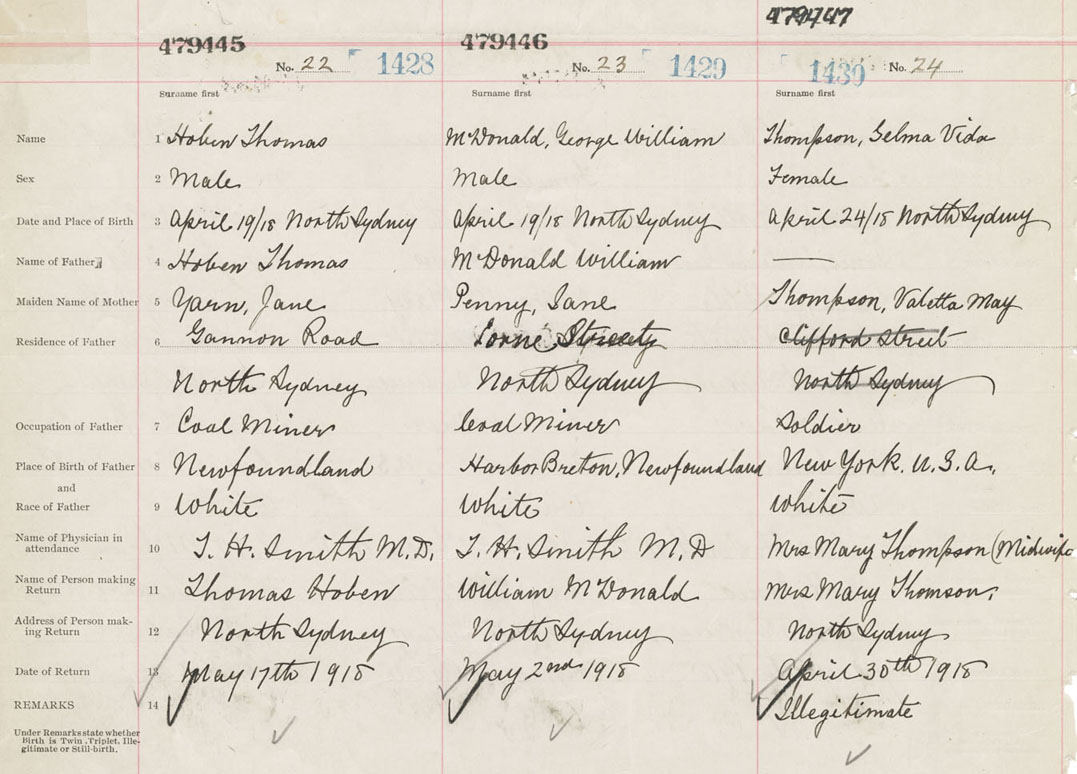 479445 479446 479447
No. 22 1428 No. 23 1429 1430 No. 24
Surname first Surname first Surname first
Name 1 Hoben Thomas McDonald, George William Thompson, Selma Vida
Sex 2 Male Male Female
Date and Place of Birth 3 April 19/18 North Sydney April 19/18 North Sydney April 24/18 North Sydney
Name of Father 4 Hoben Thomas McDonald William —
Maiden Name of Mother 5 Yarn, Jane Penny, Jane Thompson, Valetta May
Residence of Father 6 Gannon Road Lorne Street Clifford Street
North Sydney North Sydney North Sydney
Occupation of Father 7 Coal Miner Coal Miner Soldier
Place of Birth of Father 8 Newfoundland Harbor Breton, Newfoundland New York. U.S.A.
and
Race of Father 9 White White White
Name of Physician in attendance 10 T. H. Smith M.D. T. H. Smith M.D Mrs Mary Thompson (Midwife
Name of Person making Return 11 Thomas Hoben William McDonald Mrs Mary Thomson.
Address of Person mak-ing Return 12 North Sydney North Sydney North Sydney
Date of Return 13 May 17th 1918 May 2nd 1918 April 30th 1918
REMARKS 14 Illegitimate
Under Remarks state whether
Birth is Twin, Triplet, Ille-
gitimate or Still-birth.